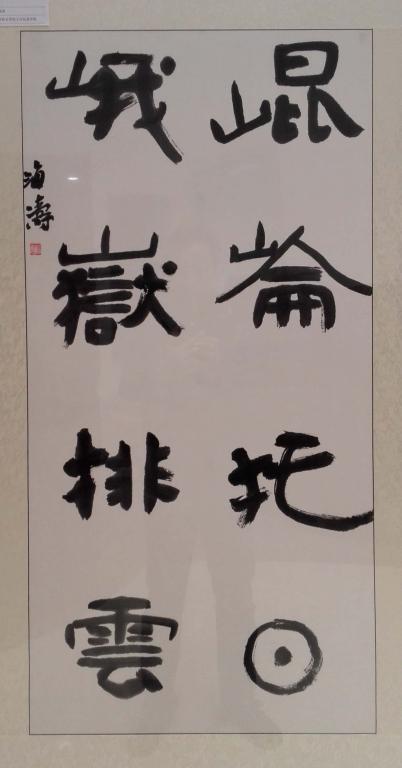 崐崙托日
峨嶽排雲
海濤